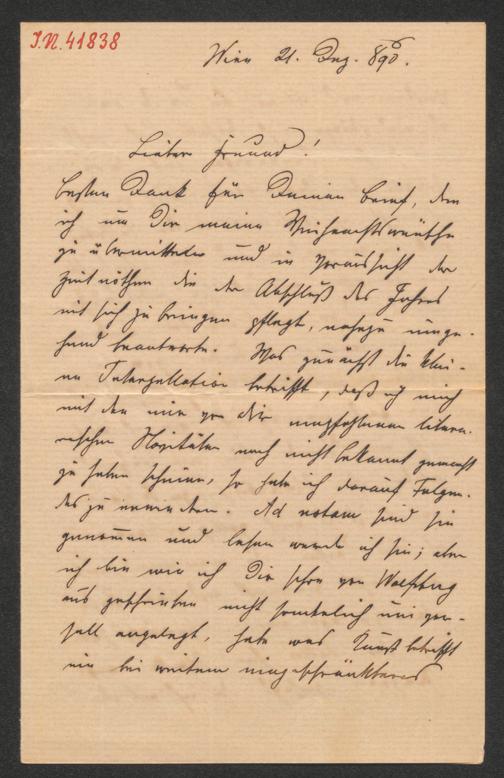 I.N. 41838
Wien 21. Dez. 890.
Lieber Freund!
Besten Dank für Deinen Brief, den
ich um Dir meine Weihnachtswünsche
zu übermitteln und in Voraussicht der
Zeitnöthen die der Abschluß des Jahres
mit sich zu bringen pflegt, nahezu umge-
hend beantworte. Was zunächst die klei-
ne Interpellation betrifft, daß ich mich
mit den mir von Dir empfohlenen litera-
rischen Novitäten noch nicht bekannt gemacht
zu haben scheine, so habe ich darauf Folgen-
des zu erwiedern. Ad notam sind sie
genommen und lesen werde ich sie; aber
ich bin wie ich Dir schon von Wolfsberg
aus geschrieben nicht sonderlich univer-
sell angelegt, habe was Kunst betrifft
ein bei weitem eingeschränkteres